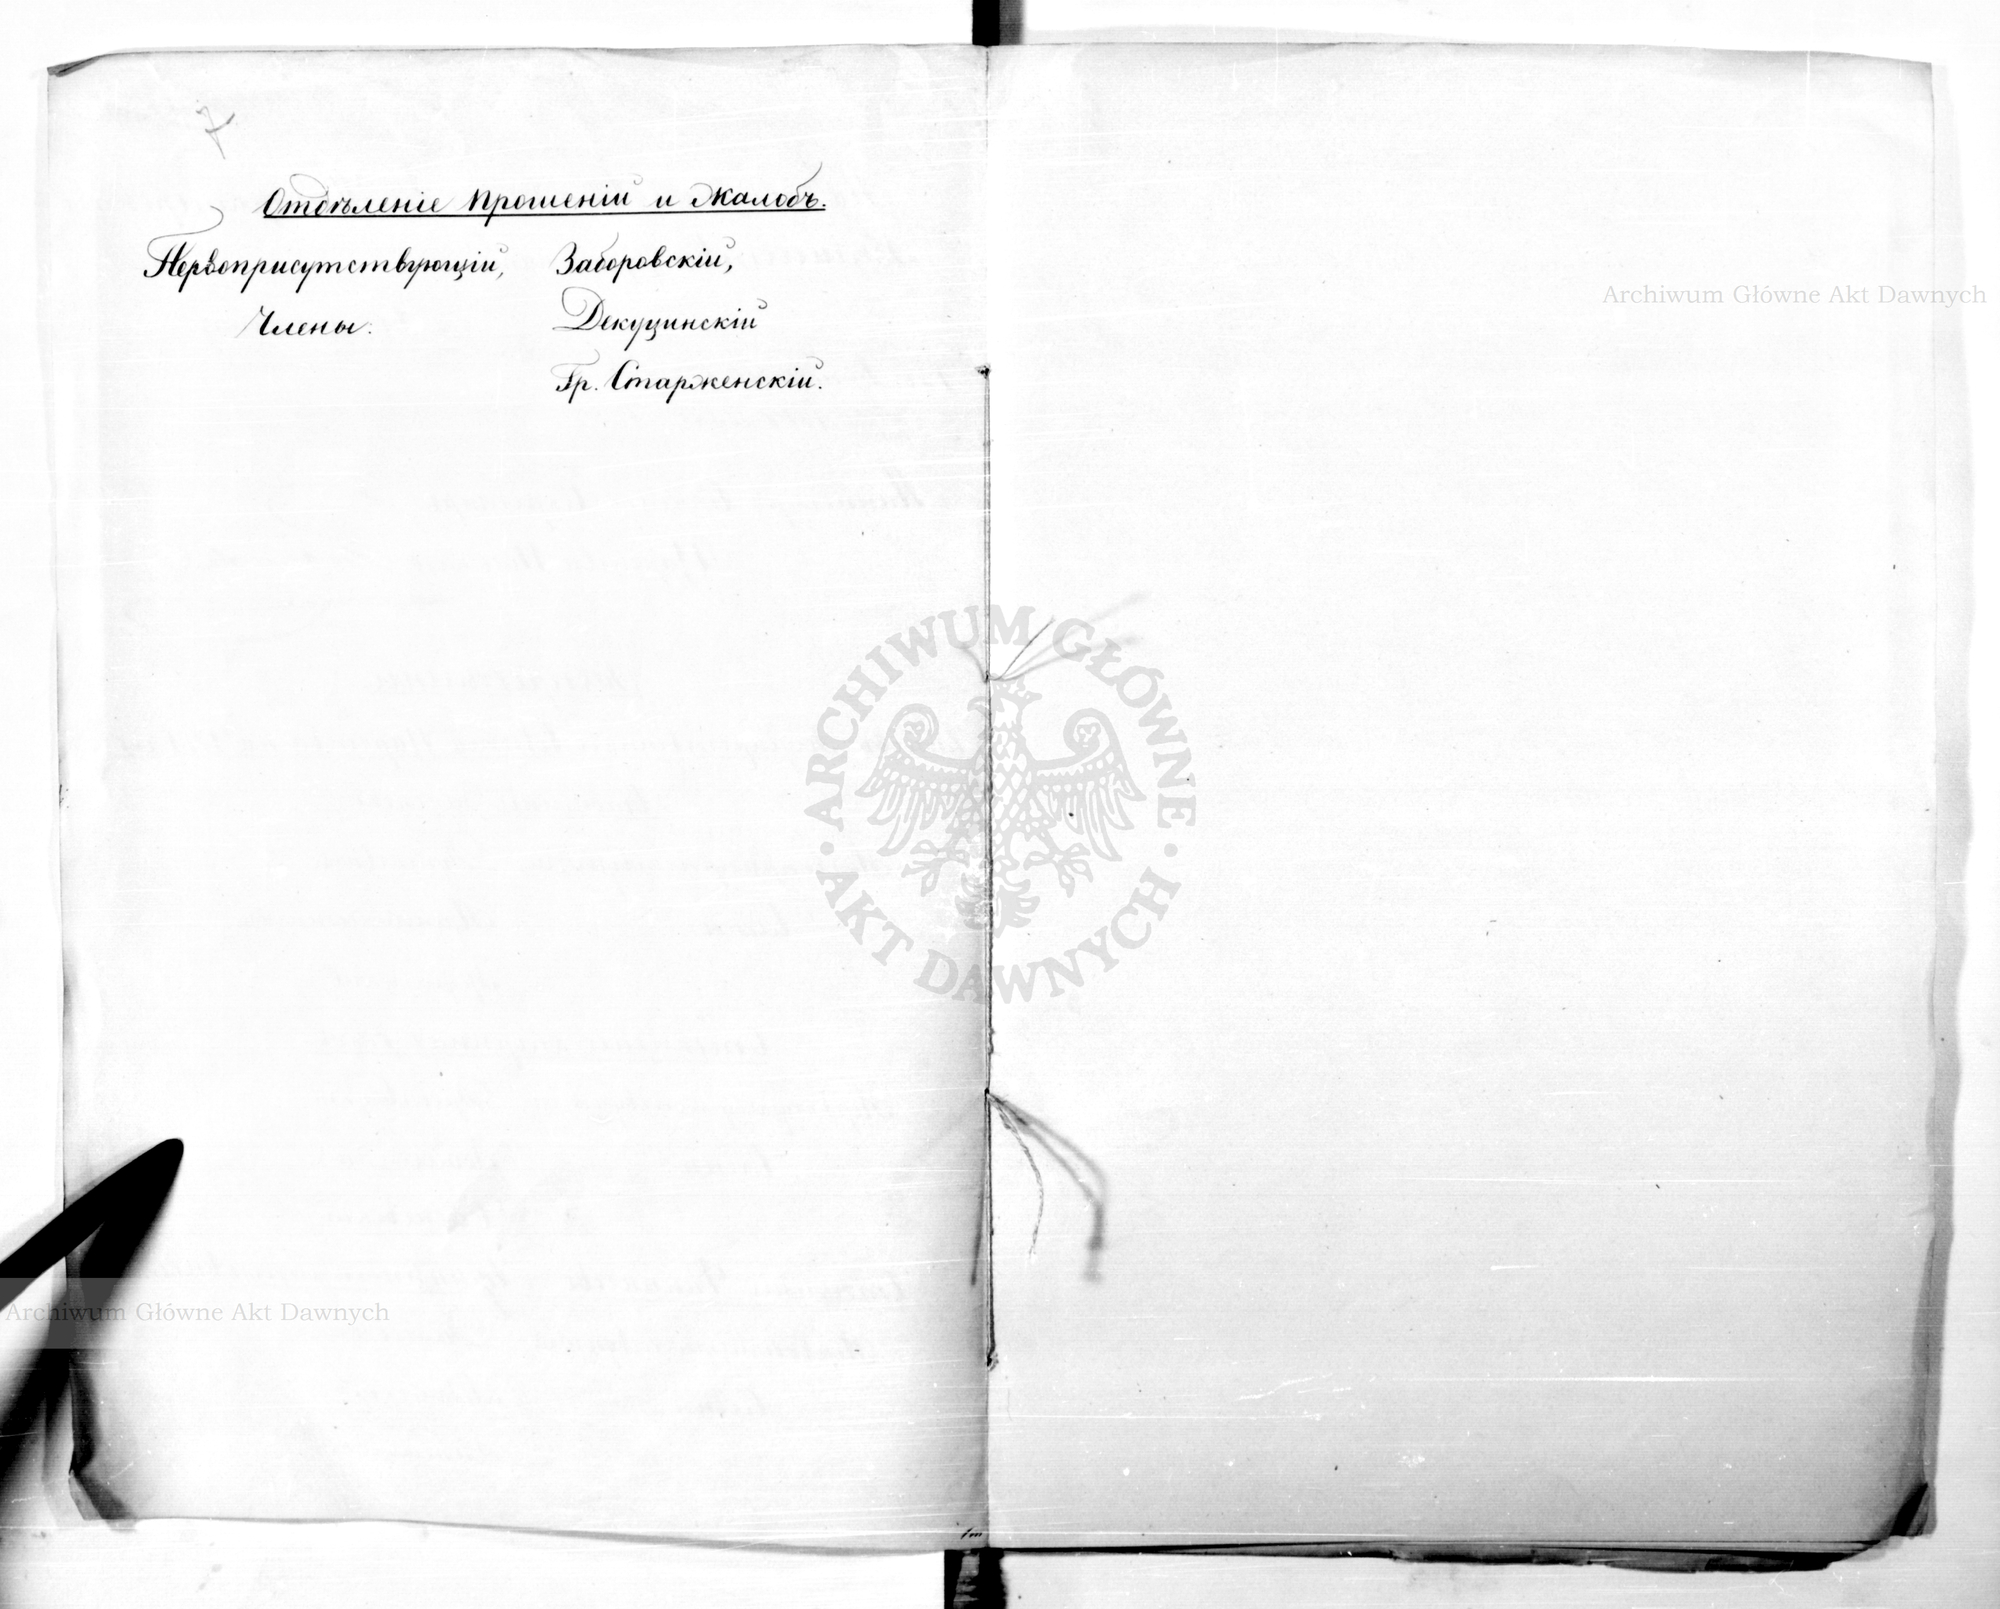 7
Отдѣленіе Прошеній и Жалобъ.
Первоприсутствующій, Заборовскій,
Члены. Декуцинскій
Гр. Старженскій.
Archiwum Główne Akt Dawnych
ARCHIWUM GŁÓWNE AKT DAWNYCH
Archiwum Główne Akt Dawnych